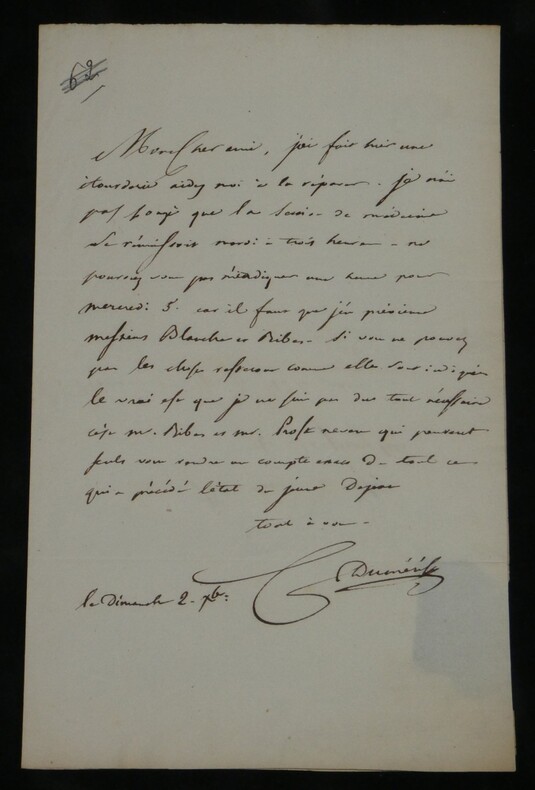 62
Mon Cher ami, j'ai fait hier une
étourderie aidez moi à la réparer. Je n'ai
pas songé que la Société de médecine
se réunissoit mardi à trois heures - ne
pourriez vous pas m'indiquer une heure pour
mercredi 5. car il faut que j'en prévienne
messieurs Blanche et Ribes. Si vous ne pouvez
pas les choses resteront comme elles sont
le vrai est que je ne suis pas du tout nécessaire
c'est mr. Ribes et mr. Prost neveu qui peuvent
seuls vous rendre un compte exact de tout ce
qui a précédé l'état du jeune
tout à vous -
C Duméril
le Dimanche 2. Xbre: